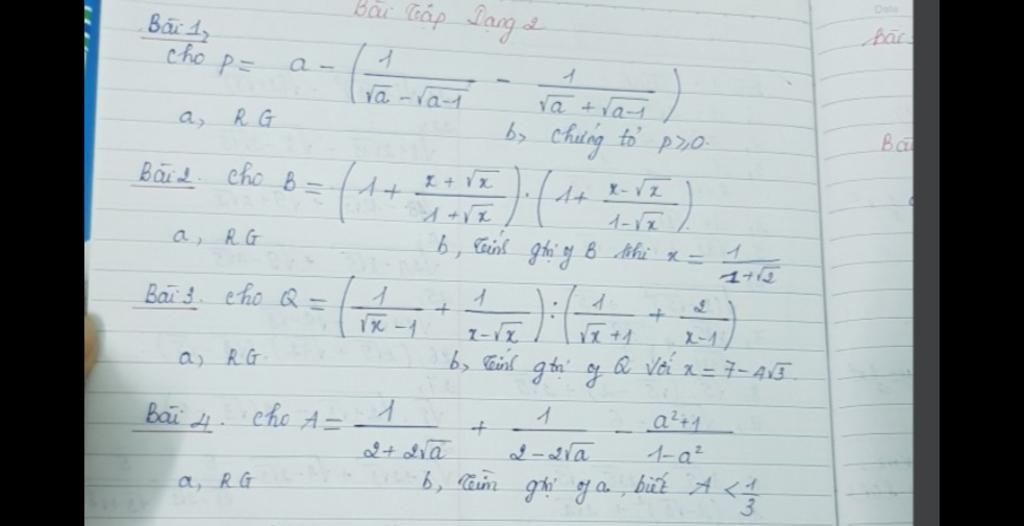 Bài Tập Dạng 2
Bài 1,
cho P = a - (1/(√a - √a-1) - 1/(√a + √a-1))
a, RG b, chứng tỏ P ≥ 0.
Bài 2. cho B = (1 + (x + √x)/(1 + √x)) . (1 + (x - √x)/(1 - √x))
a, RG b, Tính gtrị của B khi x = 1/(1+√2)
Bài 3. cho Q = (1/(√x - 1) + 1/(x - √x)) : (1/(√x + 1) + 2/(x - 1))
a, RG. b, Tính gtrị của Q với x = 7 - 4√3.
Bài 4. cho A = 1/(2 + 2√a) + 1/(2 - 2√a) - (a² + 1)/(1 - a²)
a, RG b, Tìm gtrị của a, biết A < 1/3
Data
Bài
Bài